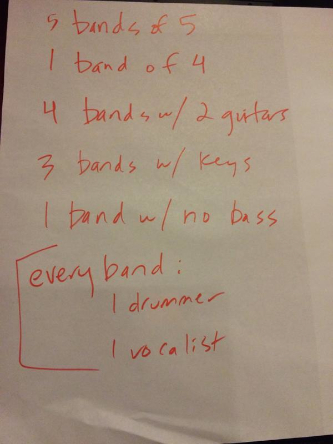 5 bands of 5
1 band of 4
4 bands w/ 2 guitars
3 bands w/ keys
1 band w/ no bass
every band:
1 drummer
1 vocalist